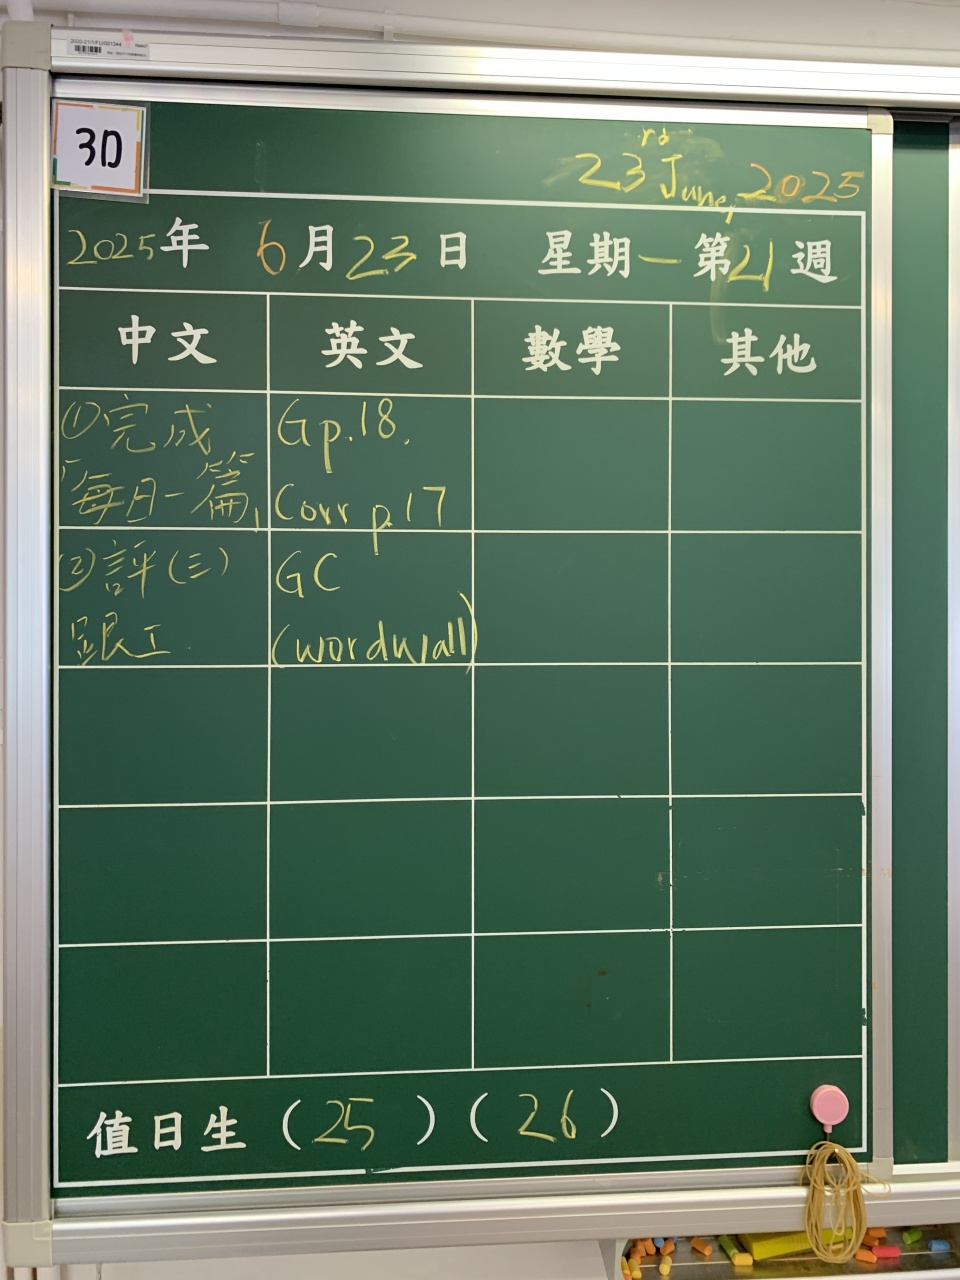 3D
23rd June, 2025
2025年 6月23日 星期一 第21週
中文 英文 數學 其他
①完成
「每日一篇」
②評(三)
Gp.18.
Corr p.17
GC
(wordwall)
值日生 (25) (26)